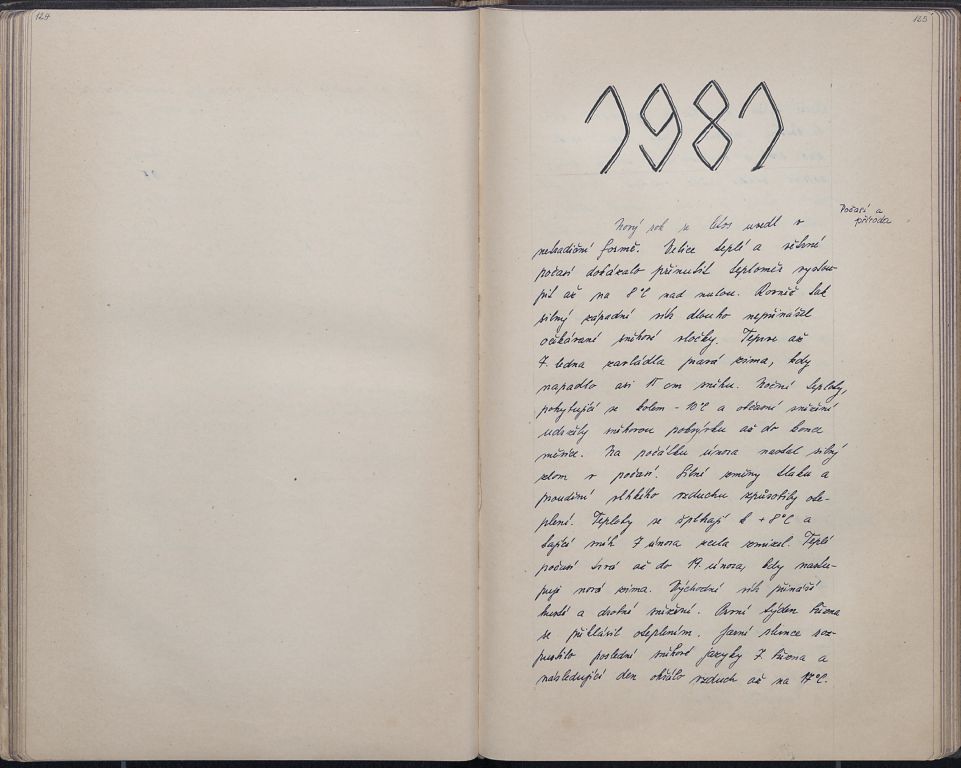 124
125
1981
Počasí a
příroda
Nový rok se letos uvedl v
netradiční formě. Velice teplé a větrné
počasí dokázalo přinutit teploměr vystou-
pit až na 8°C nad nulou. Rovněž tak
silný západní vítr dlouho nepřinášel
očekávané sněhové vločky. Teprve až
7. ledna zavládla pravá zima, kdy
napadlo asi 15 cm sněhu. Noční teploty,
pohybující se kolem -10°C a občasné sněžení
udržely sněhovou pokrývku až do konce
měsíce. Na počátku února nastal silný
zlom v počasí. Silné změny tlaku a
proudění vlhkého vzduchu způsobily ote-
plení. Teploty se šplhají k +8°C a
tající sníh 7 února zcela zmizel. Teplé
počasí trvá až do 19. února, kdy nastu-
puje nová zima. Východní vítr přináší
husté a drobné sněžení. První týden března
se přihlásil oteplením. Jarní slunce roz-
pustilo poslední sněhové jazyky 7. března a
následující den ohřálo vzduch až na 17°C.